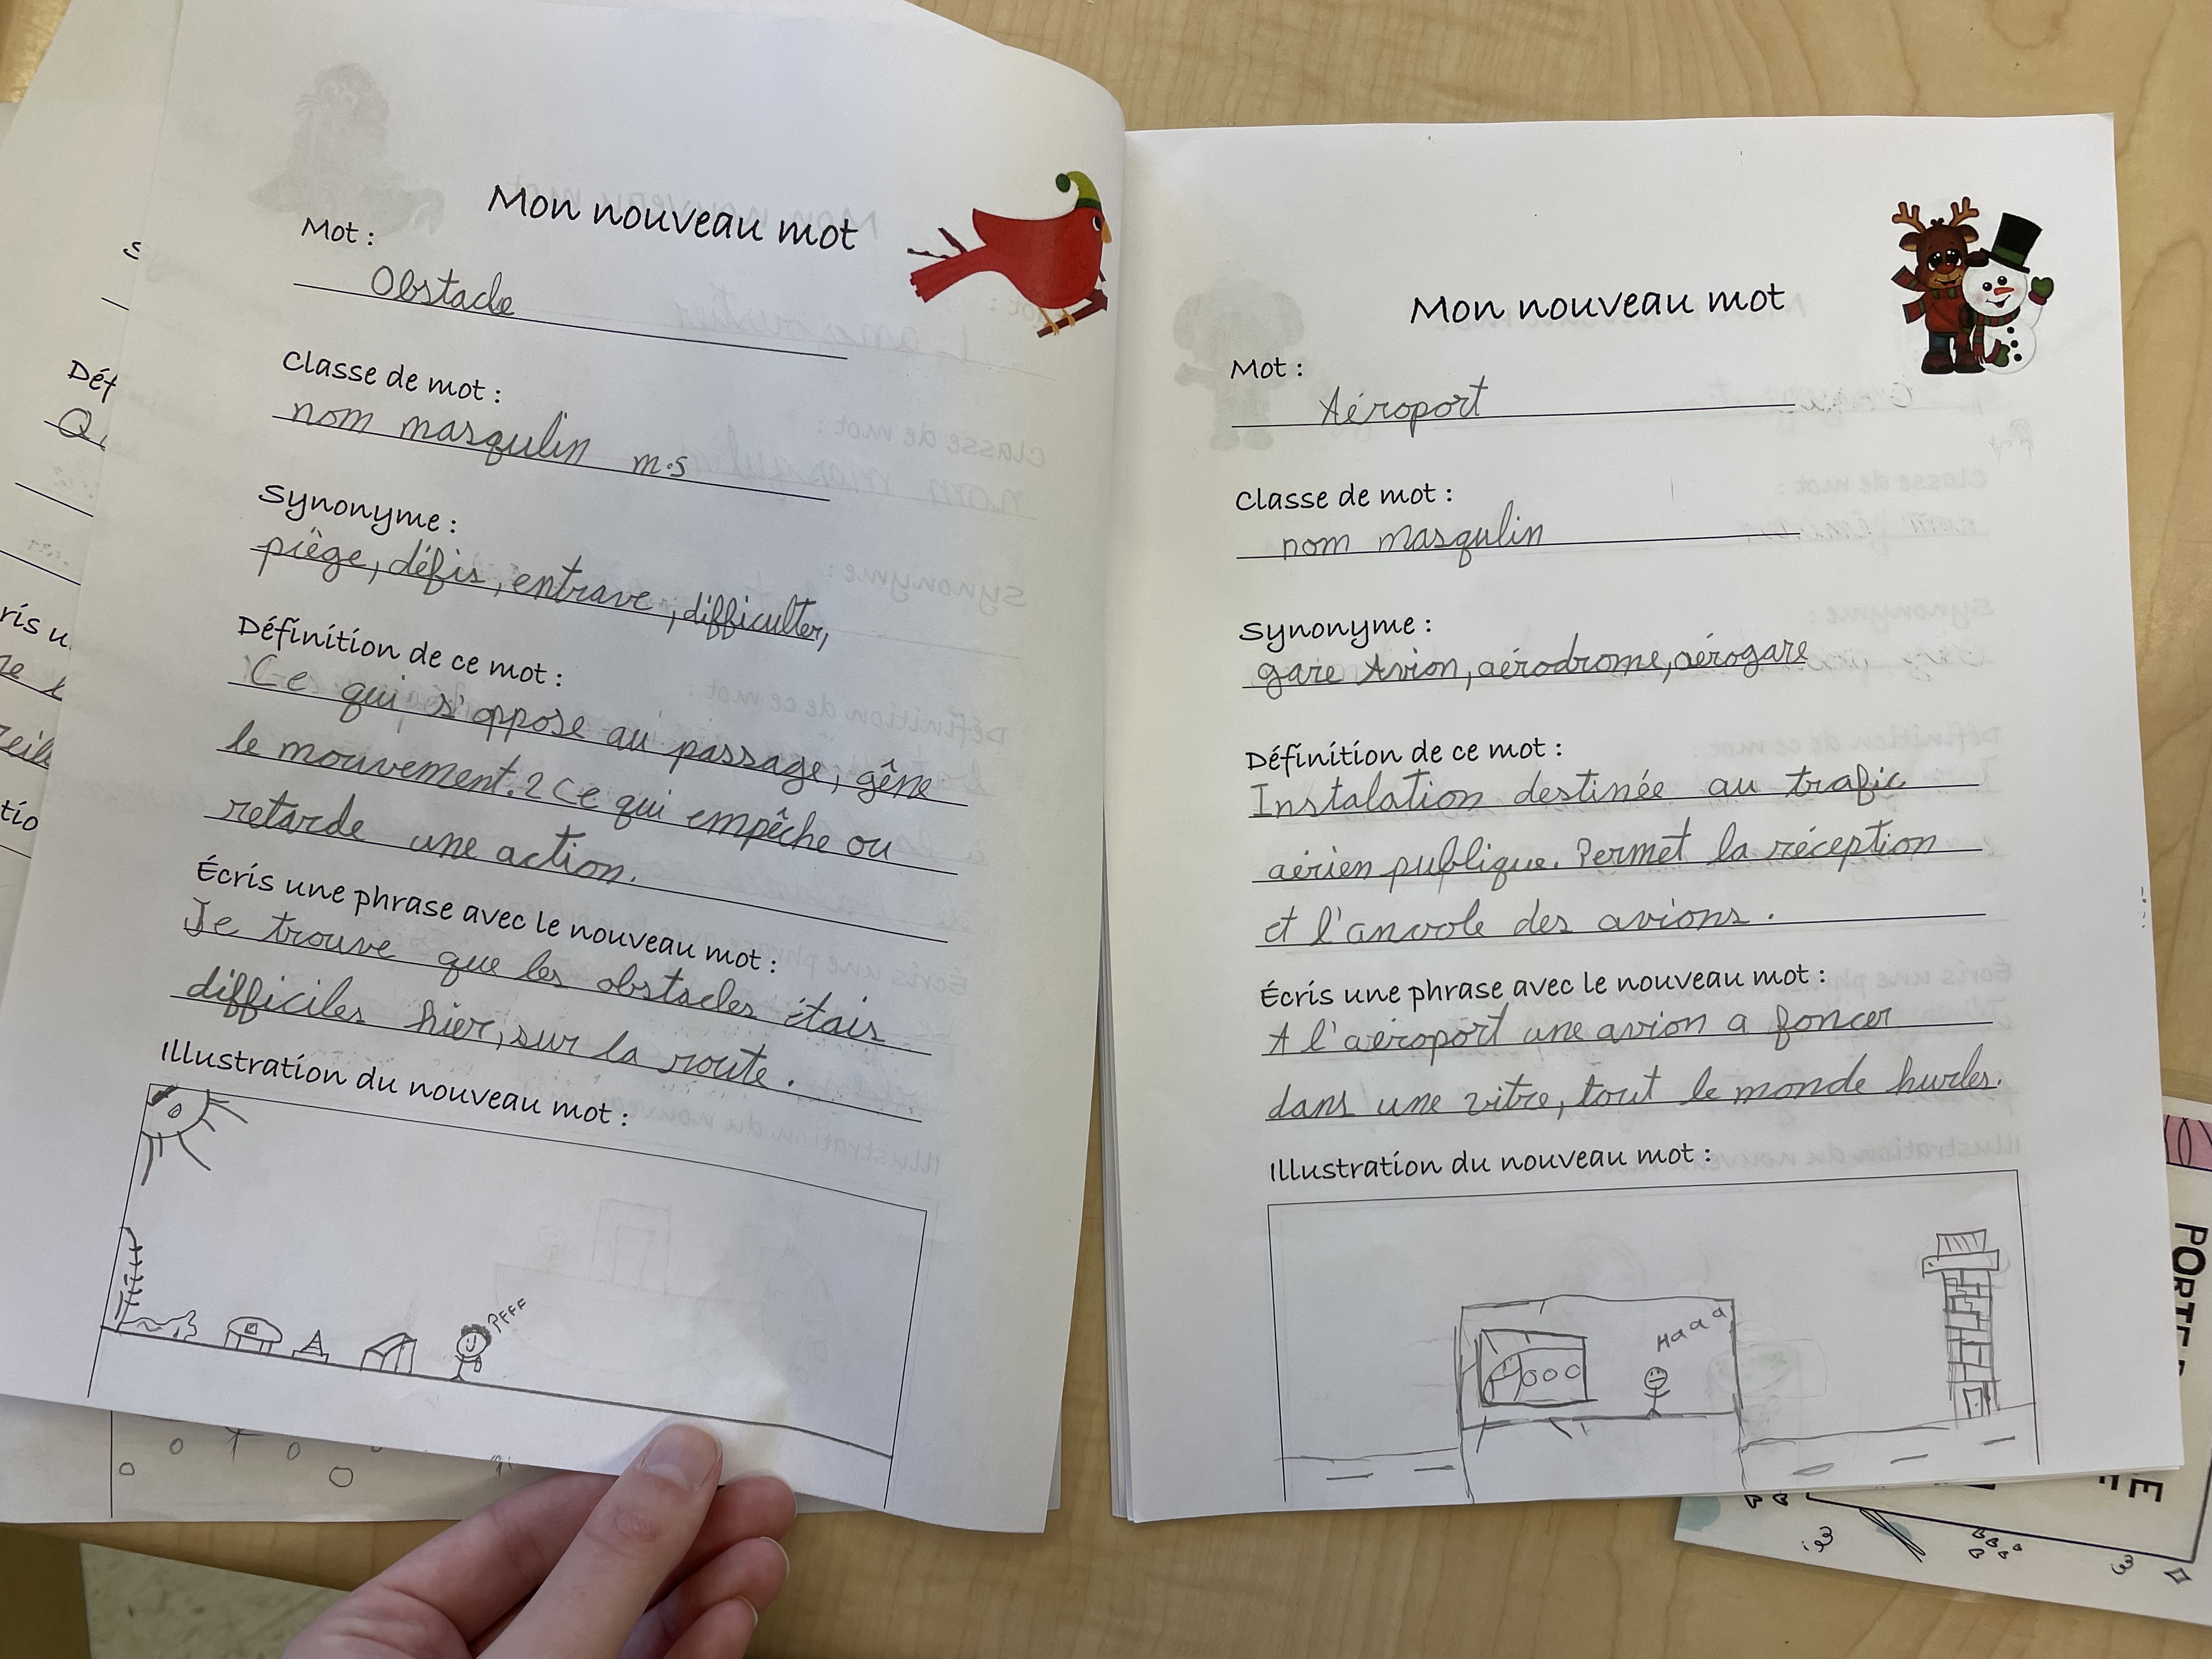 Mon nouveau mot
Mot :
Obstacle
Classe de mot :
nom masqulin m.s
Synonyme :
piège, défis, entrave, difficulter,
Définition de ce mot :
Ce qui s'oppose au passage, gêne
le mouvement. 2 Ce qui empêche ou
retarde une action.
Écris une phrase avec le nouveau mot :
Je trouve que les obstacles étais
difficiles hier, sur la route.
Illustration du nouveau mot :
Pfff
Mon nouveau mot
Mot :
Aéroport
Classe de mot :
nom masqulin
Synonyme :
gare Avion, aérodrome, aérogare
Définition de ce mot :
Instalation destinée au trafic
aérien publique. Permet la réception
et l'anvole des avions.
Écris une phrase avec le nouveau mot :
A l'aéroport une avion a foncer
dans une vitre, tout le monde hurles.
Illustration du nouveau mot :
Haaa